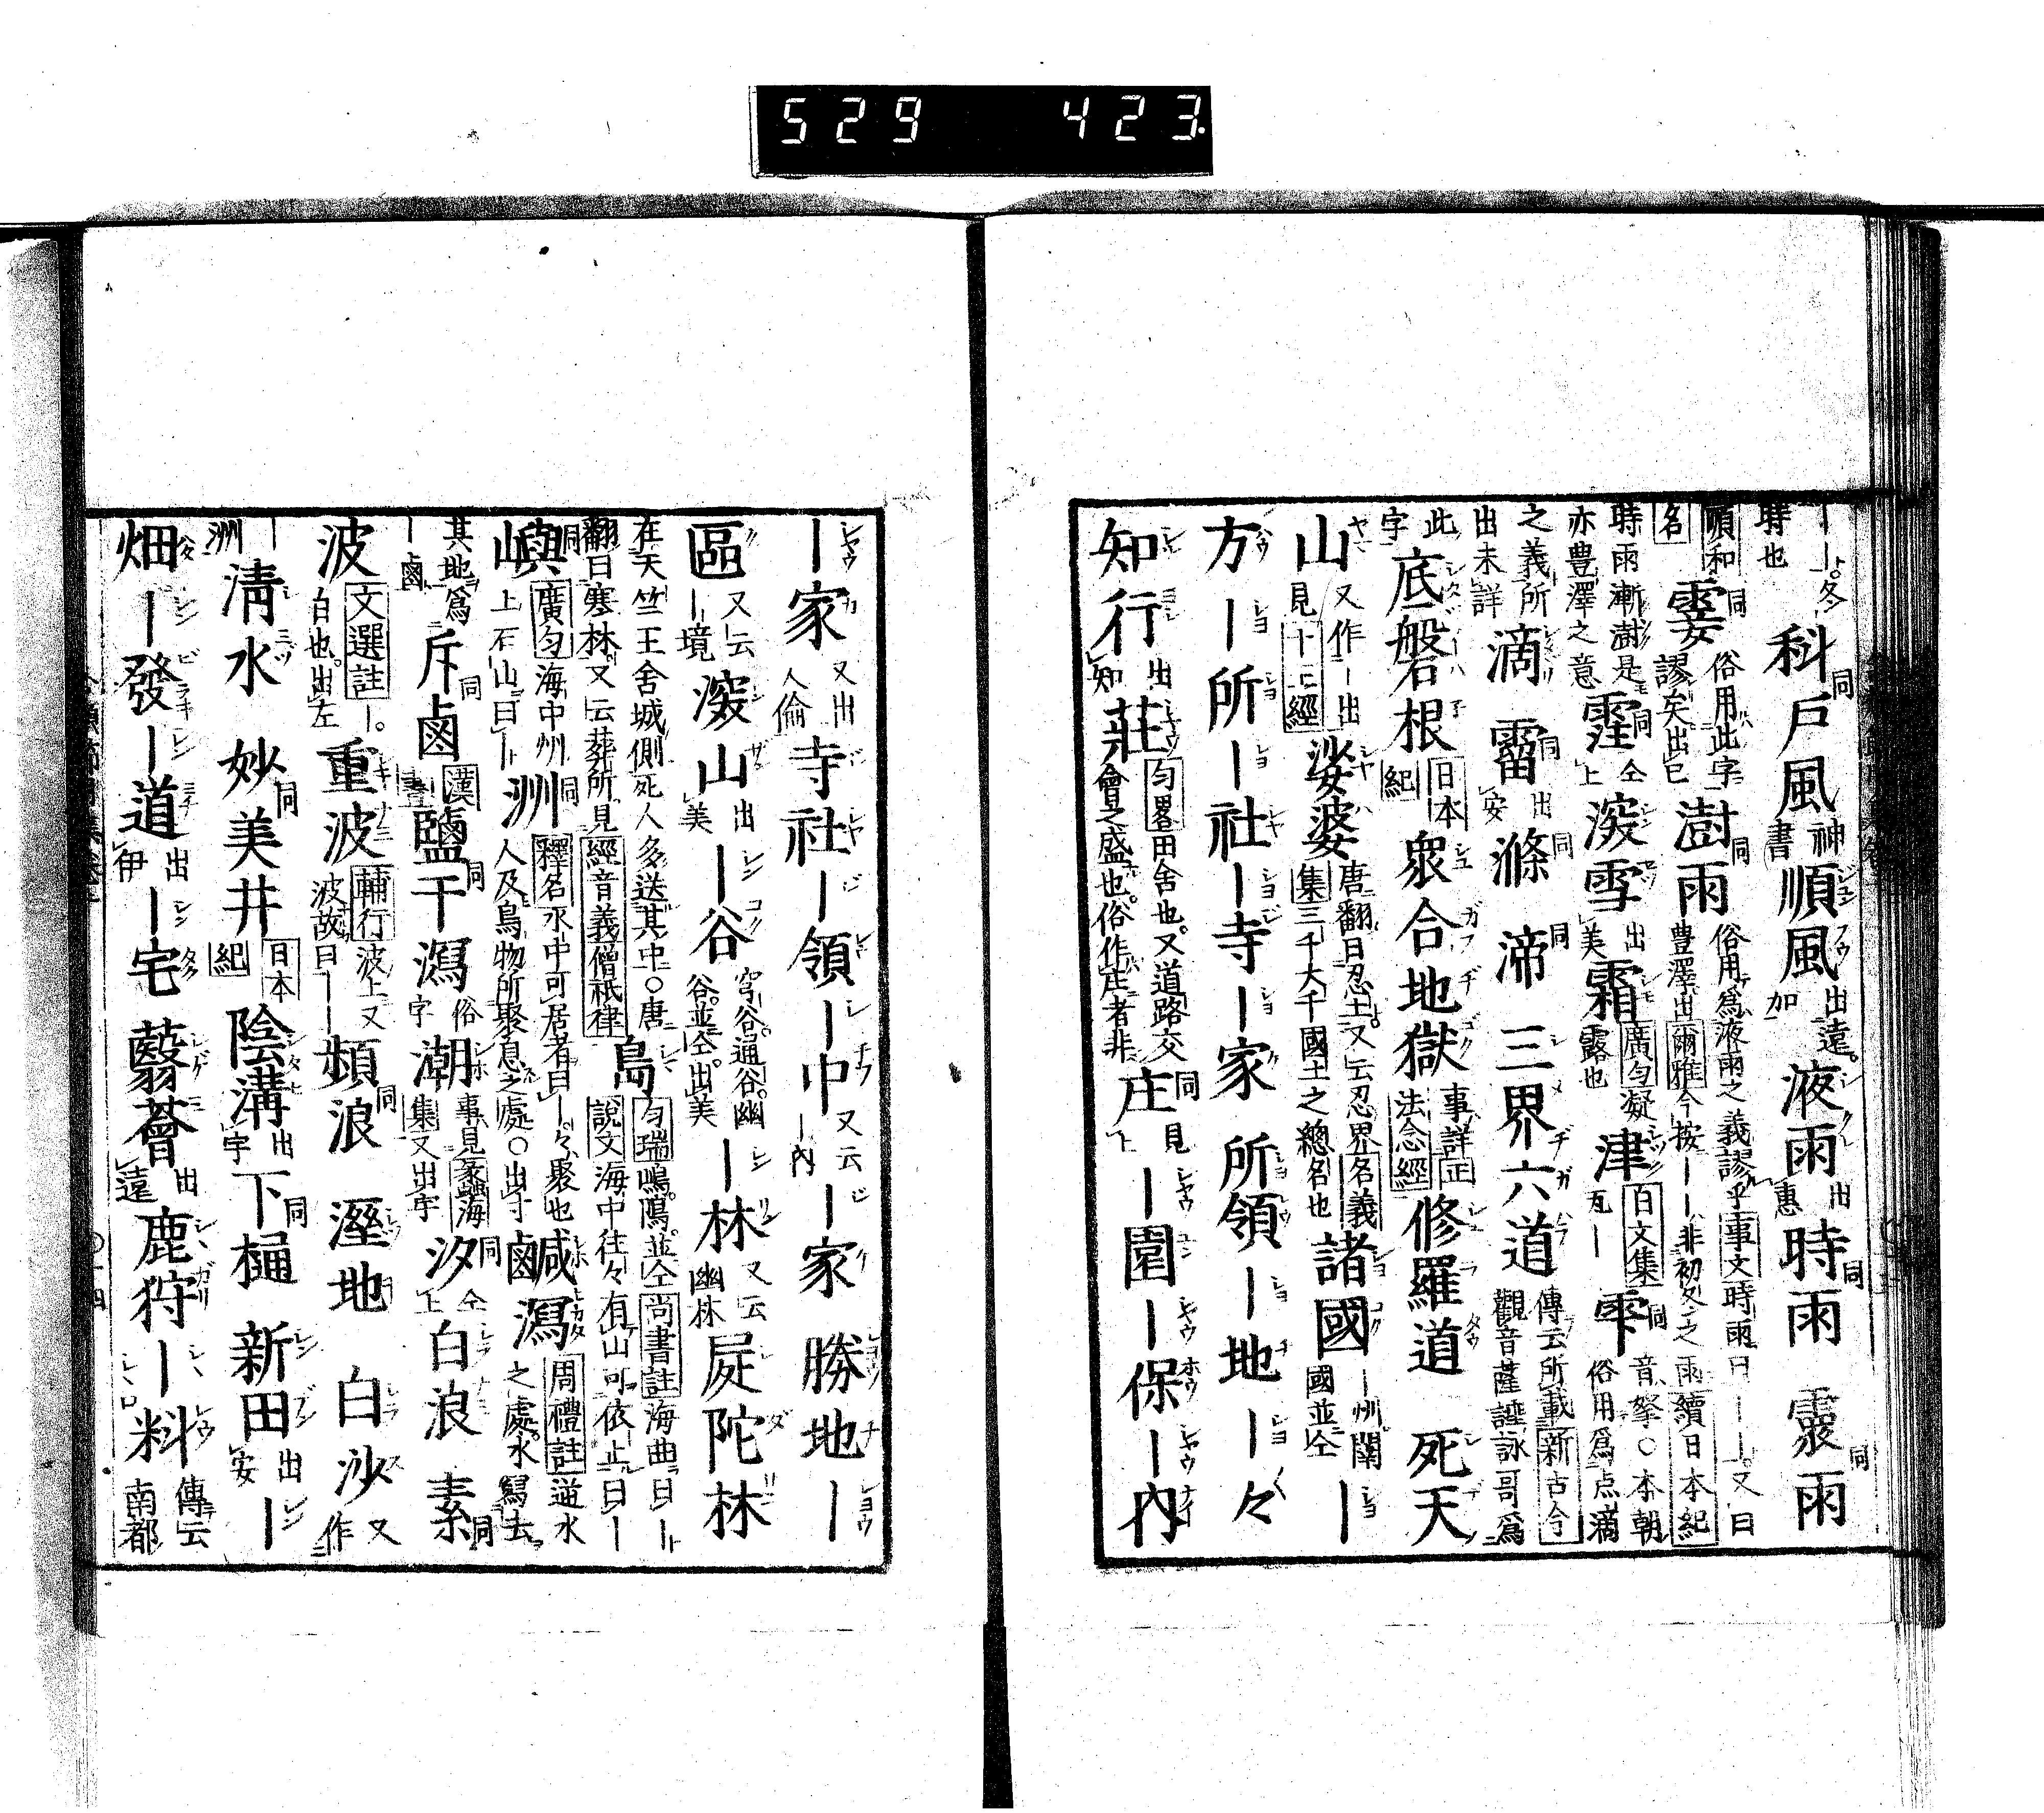 529 423
——冬
時也
科戸風神書順風出遠加液雨出惠時雨同霎雨同
順和名霎同俗用此字謬矣出已上澍雨同俗用為液雨之義謬乎事文時雨曰——又曰
豊澤出爾雅今按——非初冬之雨續日本紀
時雨漸澍是亦豊澤之意霔同仝上深雪出美霜廣匀凝露也津百文集瓦—雫同音拏○本朝俗用為点滴
之義所出未詳滴霤同出安滌同渧同三界六道傳云所載新古今觀音薩埵詠哥為
此字底磐根日本紀衆合地獄事詳正法念經修羅道死天
山又作—出見十王經娑婆唐翻曰忍土又云忍界名義集三千大千國土之總名也諸國—州闔國並仝諸—
方—所—社—寺—家所領—地—々
知行出知莊匀畧田舍也又道路交會之盛也俗作庄者非庄同見上—園—保—内
—家又出人倫寺社—領—中又云—内—家勝地—
區又云—境深山出美—谷穹谷通谷幽谷並仝出美—林又云幽林屍陀林
在天竺王舍城側死人多送其中○唐翻曰寒林又云葬所見經音義僧祇律島匀瑞嶋隝並仝尚書註海曲曰—說文海中往々有山可依止曰—
嶼同廣匀海中州上石山曰—洲同釋名水中可居者曰—々聚也人及鳥物所聚息之處○出宇鹹瀉周禮註逆水之處水寫去
其地為—鹵斥鹵同漢書鹽干瀉同俗字潮事見篆海集又出宇汐同仝上白浪素同
波文選註—白也出左重波輔行波上又波故曰——頻浪同溼地白沙又作—
洲清水妙美井同日本紀陰溝出宇下樋同新田出安—
畑—發—道出伊—宅蘙薈出遠鹿狩—料傳云南都